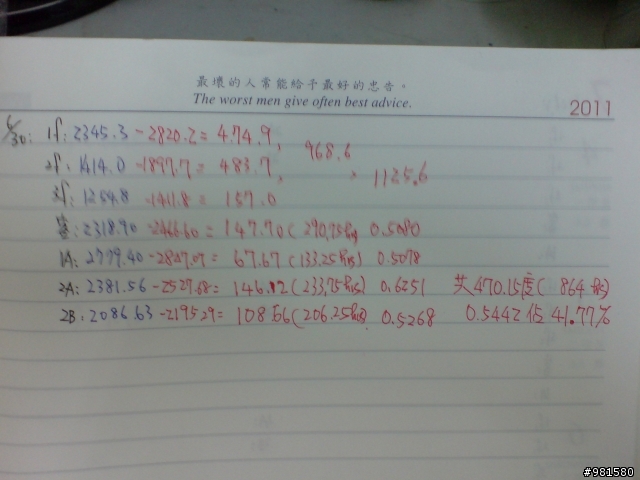 最壞的人常能給予最好的忠告。
The worst men give often best advice.
2011
6/30: 1f: 2345.3 - 2820.2 = 474.9, 968.6
2f: 1414.0 - 1897.7 = 483.7, , 1125.6
3f: 1254.8 - 1411.8 = 157.0
客: 2318.90 - 2466.60 = 147.70 (290.75hrs) 0.5080
1A: 2779.40 - 2847.07 = 67.67 (133.25hrs) 0.5078
2A: 2381.56 - 2527.68 = 146.12 (233.75hrs) 0.6251 共470.15度( 864 hrs)
2B: 2086.63 - 2195.29 = 108.66 (206.25hrs) 0.5268 0.5442 佔 41.77%
#981580